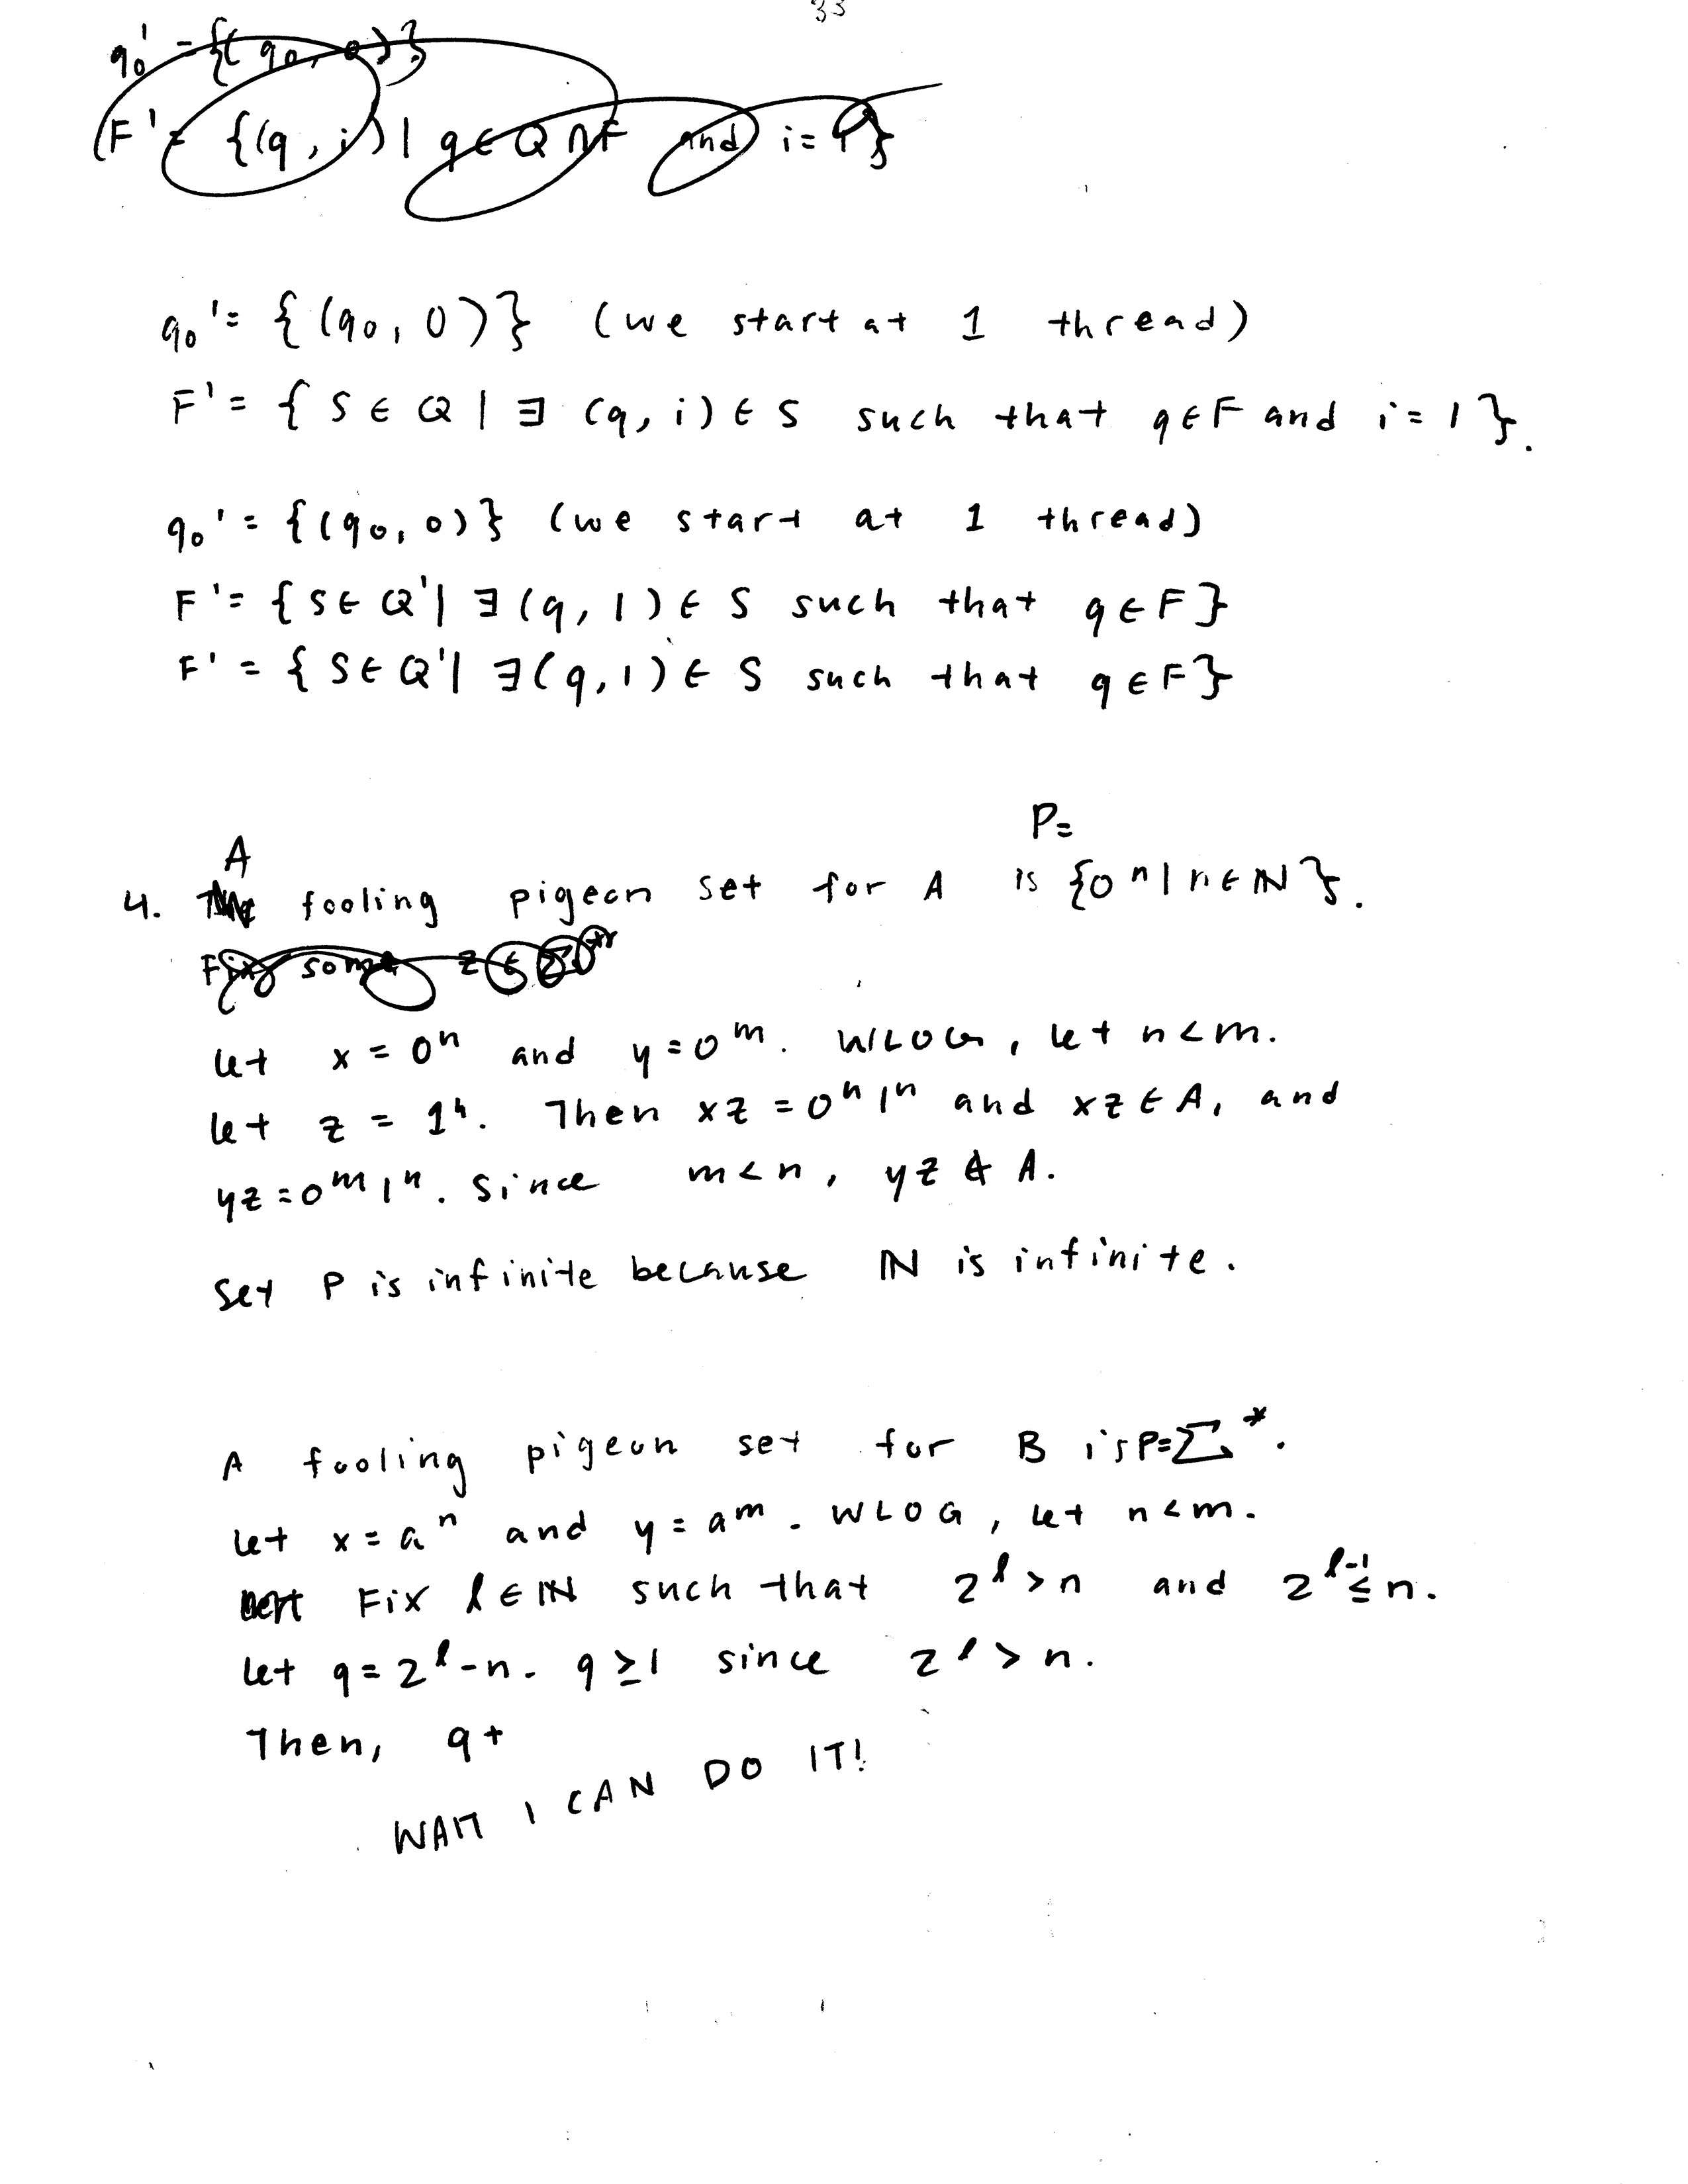 33
q₀' = {(q₀, 0)}
F' = {(q, i) | q ∈ Q ∩ F and i = }
q₀' = {(q₀, 0)} (we start at 1 thread)
F' = { S ∈ Q | ∃ (q, i) ∈ S such that q ∈ F and i = 1 }.
q₀' = {(q₀, 0)} (we start at 1 thread)
F' = { S ∈ Q' | ∃ (q, 1) ∈ S such that q ∈ F }
F' = { S ∈ Q' | ∃ (q, 1) ∈ S such that q ∈ F }
4. A fooling pigeon set for A P= is {0ⁿ | n ∈ ℕ}.
Fix some z ∈ Σ*
Let x = 0ⁿ and y = 0ᵐ. WLOG, let n < m.
Let z = 1ⁿ. Then xz = 0ⁿ1ⁿ and xz ∈ A, and
yz = 0ᵐ1ⁿ. Since m < n, yz ∉ A.
Set P is infinite because ℕ is infinite.
A fooling pigeon set for B is P=Σ*.
Let x = aⁿ and y = aᵐ. WLOG, let n < m.
Fix l ∈ ℕ such that 2ˡ > n and 2ˡ⁻¹ ≤ n.
Let q = 2ˡ - n. q ≥ 1 since 2ˡ > n.
Then, q +
WAIT I CAN DO IT!